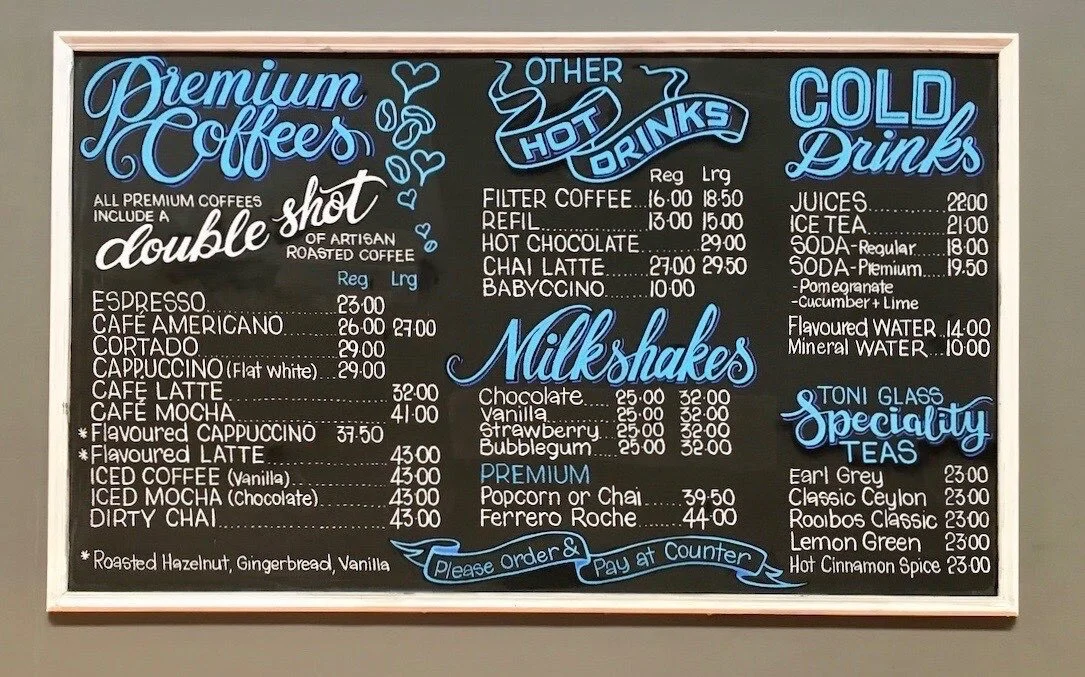 Premium
Coffees
ALL PREMIUM COFFEES
INCLUDE A
double shot
OF ARTISAN
ROASTED COFFEE
Reg Lrg
ESPRESSO 23.00
CAFÉ AMERICANO 26.00 27.00
CORTADO 29.00
CAPPUCCINO (Flat White) 29.00
CAFÉ LATTE 32.00
CAFÉ MOCHA 41.00
*Flavoured CAPPUCCINO 37.50
*Flavoured LATTE 43.00
ICED COFFEE (Vanilla) 43.00
ICED MOCHA (Chocolate) 43.00
DIRTY CHAI 43.00
*Roasted Hazelnut, Gingerbread, Vanilla
OTHER
HOT
DRINKS
Reg Lrg
FILTER COFFEE 16.00 18.50
REFIL 13.00 15.00
HOT CHOCOLATE 29.00
CHAI LATTE 27.00 29.50
BABYCCINO 10.00
Milkshakes
Chocolate 25.00 32.00
Vanilla 25.00 32.00
Strawberry 25.00 32.00
Bubblegum 25.00 32.00
PREMIUM
Popcorn or Chai 39.50
Ferrero Roche 44.00
Please Order & Pay at Counter
COLD
Drinks
JUICES 22.00
ICE TEA 21.00
SODA-Regular 18.00
SODA-Premium 19.50
-Pomegranate
-Cucumber + Lime
Flavoured WATER 14.00
Mineral WATER 10.00
TONI GLASS
Speciality
TEAS
Earl Grey 23.00
Classic Ceylon 23.00
Rooibos Classic 23.00
Lemon Green 23.00
Hot Cinnamon Spice 23.00